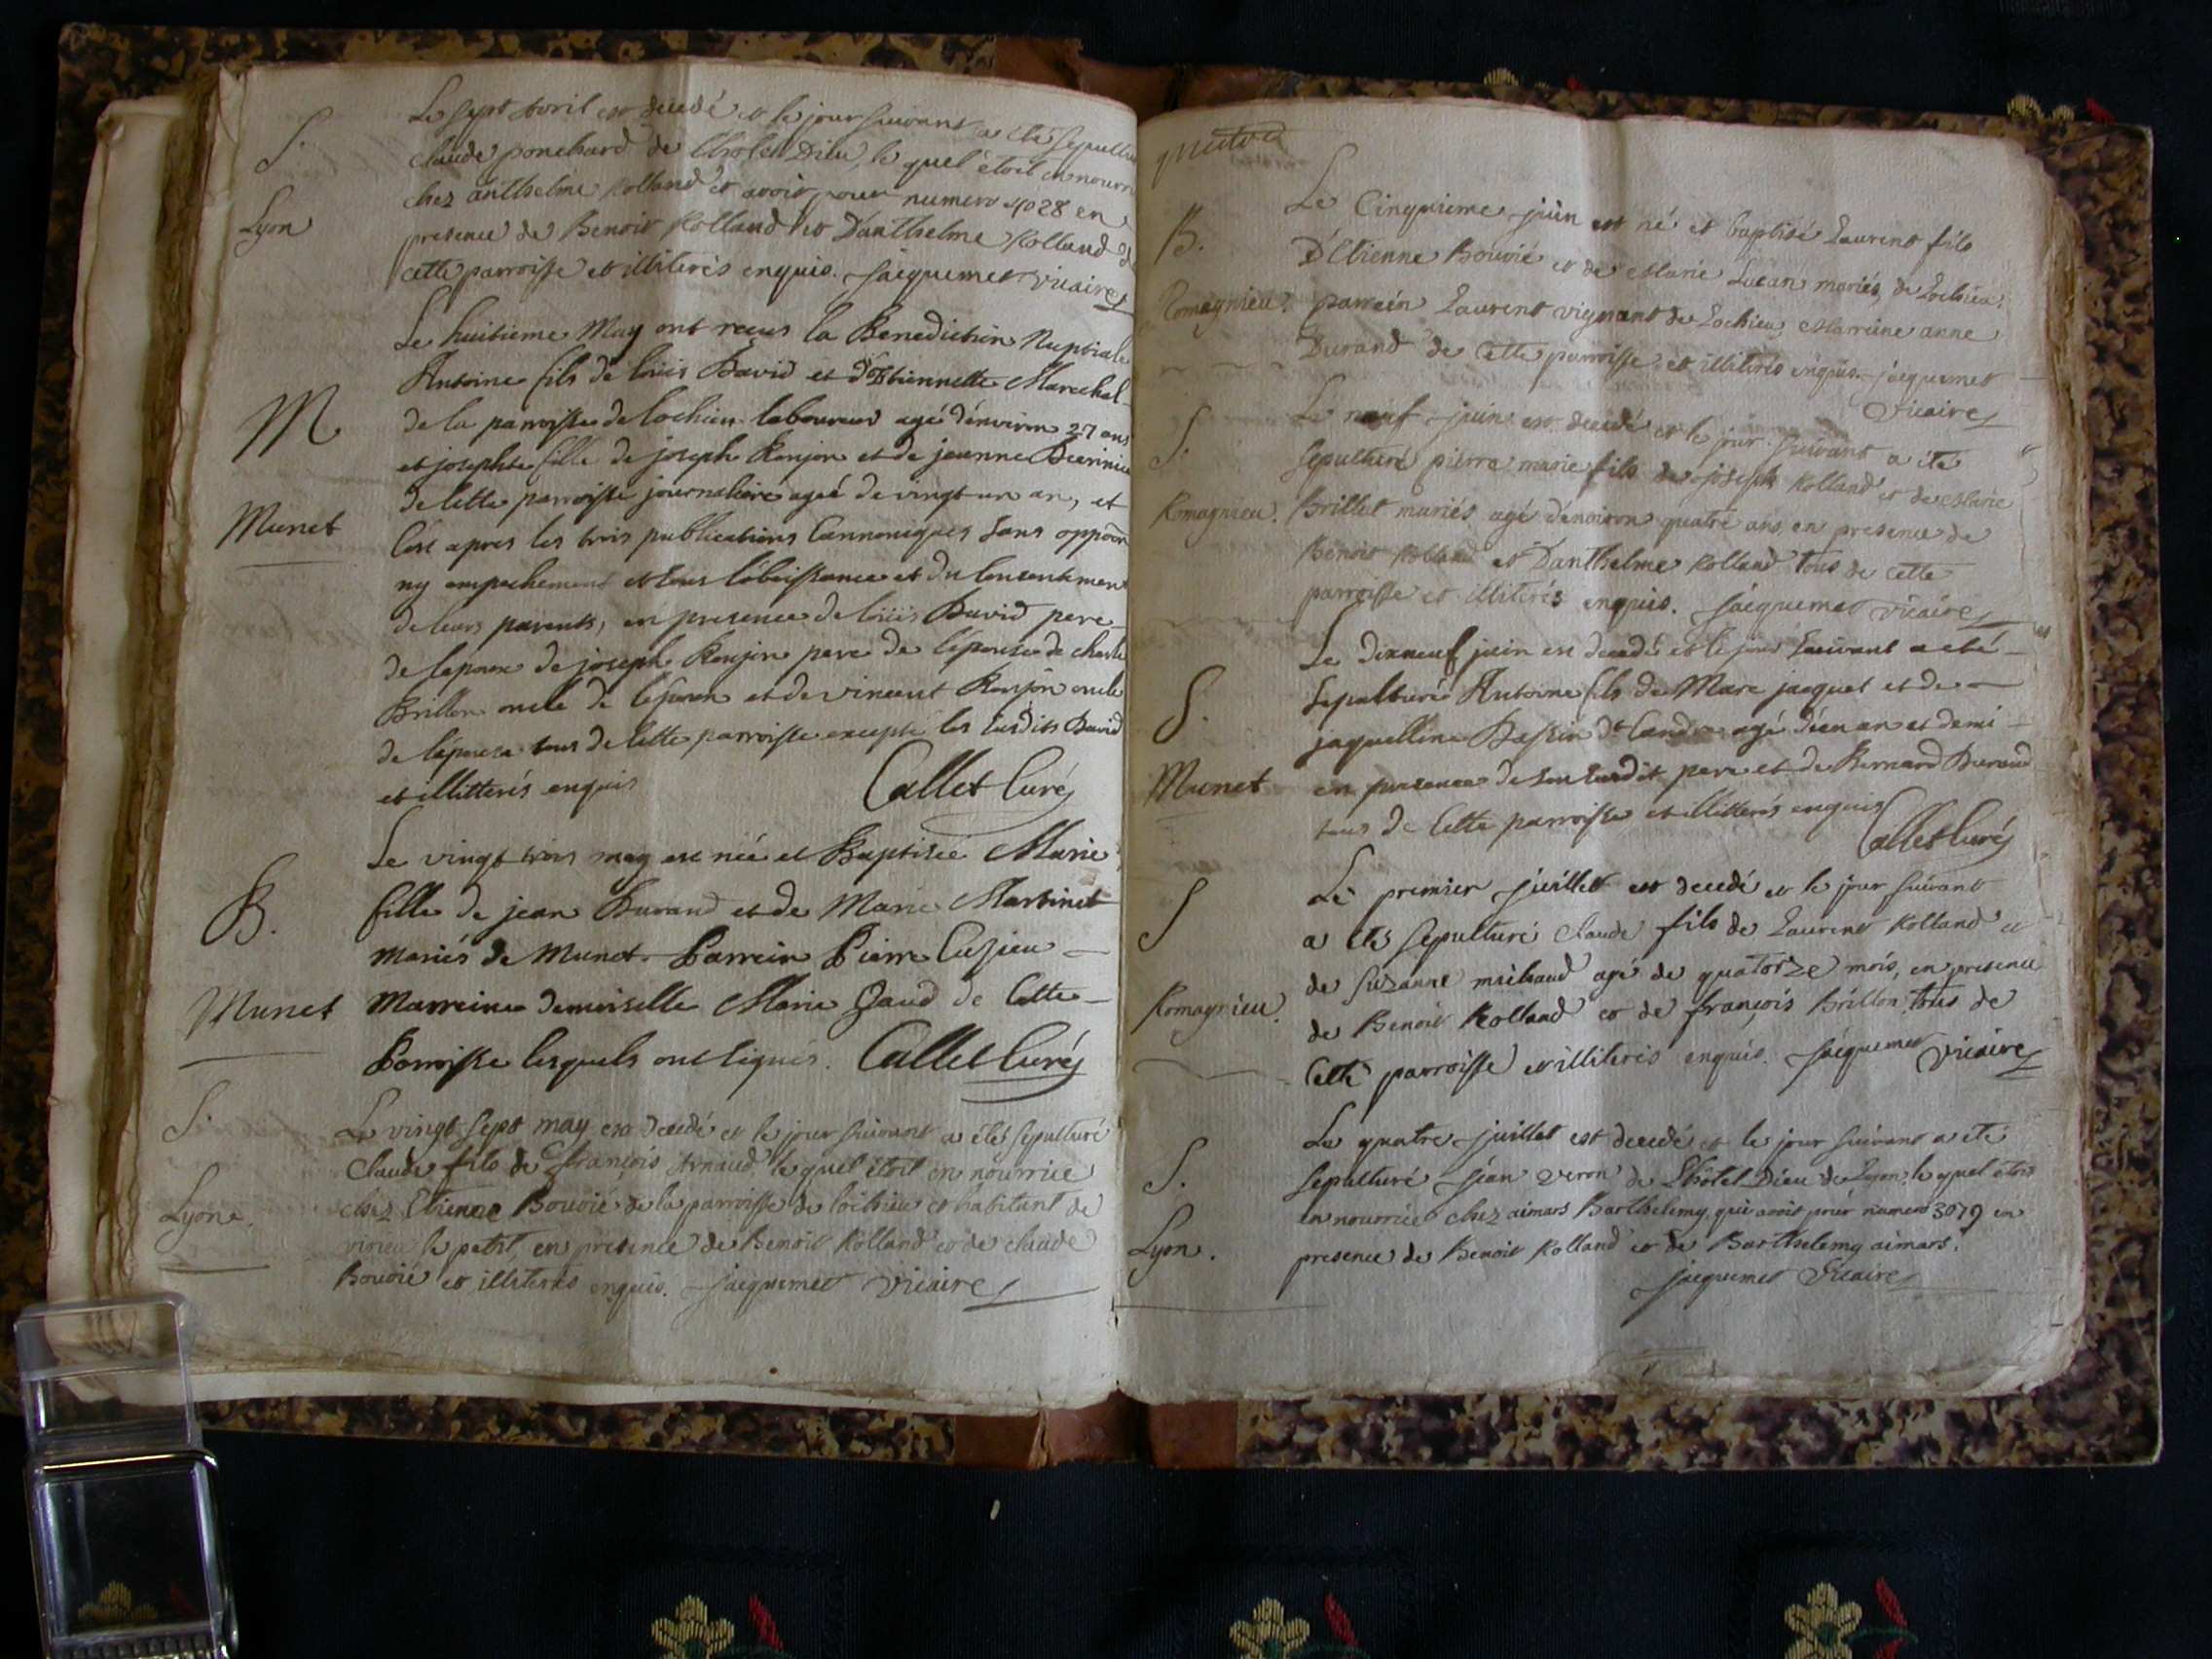 S.
Lyon
Le sept avril est decedé et le jour suivant a été sepulturé
claude ponchard de l'hotel Dieu, le quel étoit en nourri
chez anthelme Rolland et avoit pour numero 4028 en
presence de Benoit Rolland et D'anthelme Rolland d
cette parroisse et illiterés enquis. Jacquemet vicaire
M
Munet
Le huitieme May ont recus la Benediction Nuptiale
Antoine fils de loüis David et d'Etiennette Marechal
de la parroisse de lochieu laboureur agé d'environ 27 ans
et josephte fille de joseph Ronjon et de jeanne
de cette parroisse journaliere ageé de vingt un an, et
C'est apres les trois publications Cannoniques sans oppoôn
ny empechement et sous l'obeissance et du Consentement
de leurs parents, en presence de loüis David pere
de lepoux de joseph Ronjon pere de l'épouse de charle
Brillon oncle de lepoux et de vincent Ronjon oncle
de l'épouse tous de cette parroisse excepté les susdits David
et illitterés enquis Callet Curé
B.
Munet
Le vingt trois may est née et Baptisée Marie
fille de jean Durand et de Marie Martinet
mariés de Munet Parrein Pierre Cusieu
Marreine demoiselle Marie Jaud de Cette
Parroisse lesquels ont signés. Callet Curé
S.
Lyon.
Le vingt sept may est decedé et le jour suivant a été sepulturé
Claude fils de françois Arnaud le quel étoit en nourrice
chez Etienne Bouvié de la parroisse de lochieu et habitant de
virieu le petit, en presence de Benoit Rolland et de claude
Bouvié et illiterés enquis. Jacquemet vicaire
B.
Romagnieu.
Le Cinquieme juin est né et baptisé Laurent fils
D'Etienne Bouvié et de Marie Lucan mariés, de Lochieu.
parrein Laurent vignant de Lochieu, Marreine anne
Durand de Cette parroisse et illiterés enquis. jacquemet
vicaire
S.
Romagnieu.
Le neuf juin est decedé et le jour suivant a été
sepulturé pierre marie fils de joseph Rolland et de Marie
Brillet mariés agé d'environ quatre ans, en presence de
Benoit Rolland et D'anthelme Rolland tous de cette
parroisse et illiterés enquis. Jacquemet vicaire
S.
Munet
Le dixneuf juin est decedé et le jour suivant a eté
Sepulturé Antoine fils de Marc jacquet et de
jaquelline Bassin agé d'un an et demi
en presence de son susdit pere et de Bernard Durand
tous de Cette parroisse et illitterés enquis
Callet Curé
S
Romagnieu.
Le premier juillet est decedé et le jour suivant
a été sepulturé Claude fils de Laurent Rolland et
de suzanne michaud agé de quatorze mois, en presence
de Benoit Rolland et de françois Brillon, tous de
Cette parroisse et illiterés enquis. Jacquemet vicaire
S.
Lyon.
Le quatre juillet est decedé et le jour suivant a été
sepulturé jean veron de L'hôtel Dieu de Lyon, le quel étoit
en nourrice chez aimars Barthelemy, qui avoit pour numero 3079 en
presence de Benoit Rolland et de Barthelemy aimars.
jacquemet vicaire